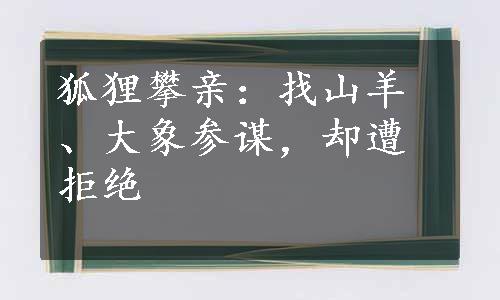 狐狸攀亲：找山羊
、大象参谋，却遭
拒绝